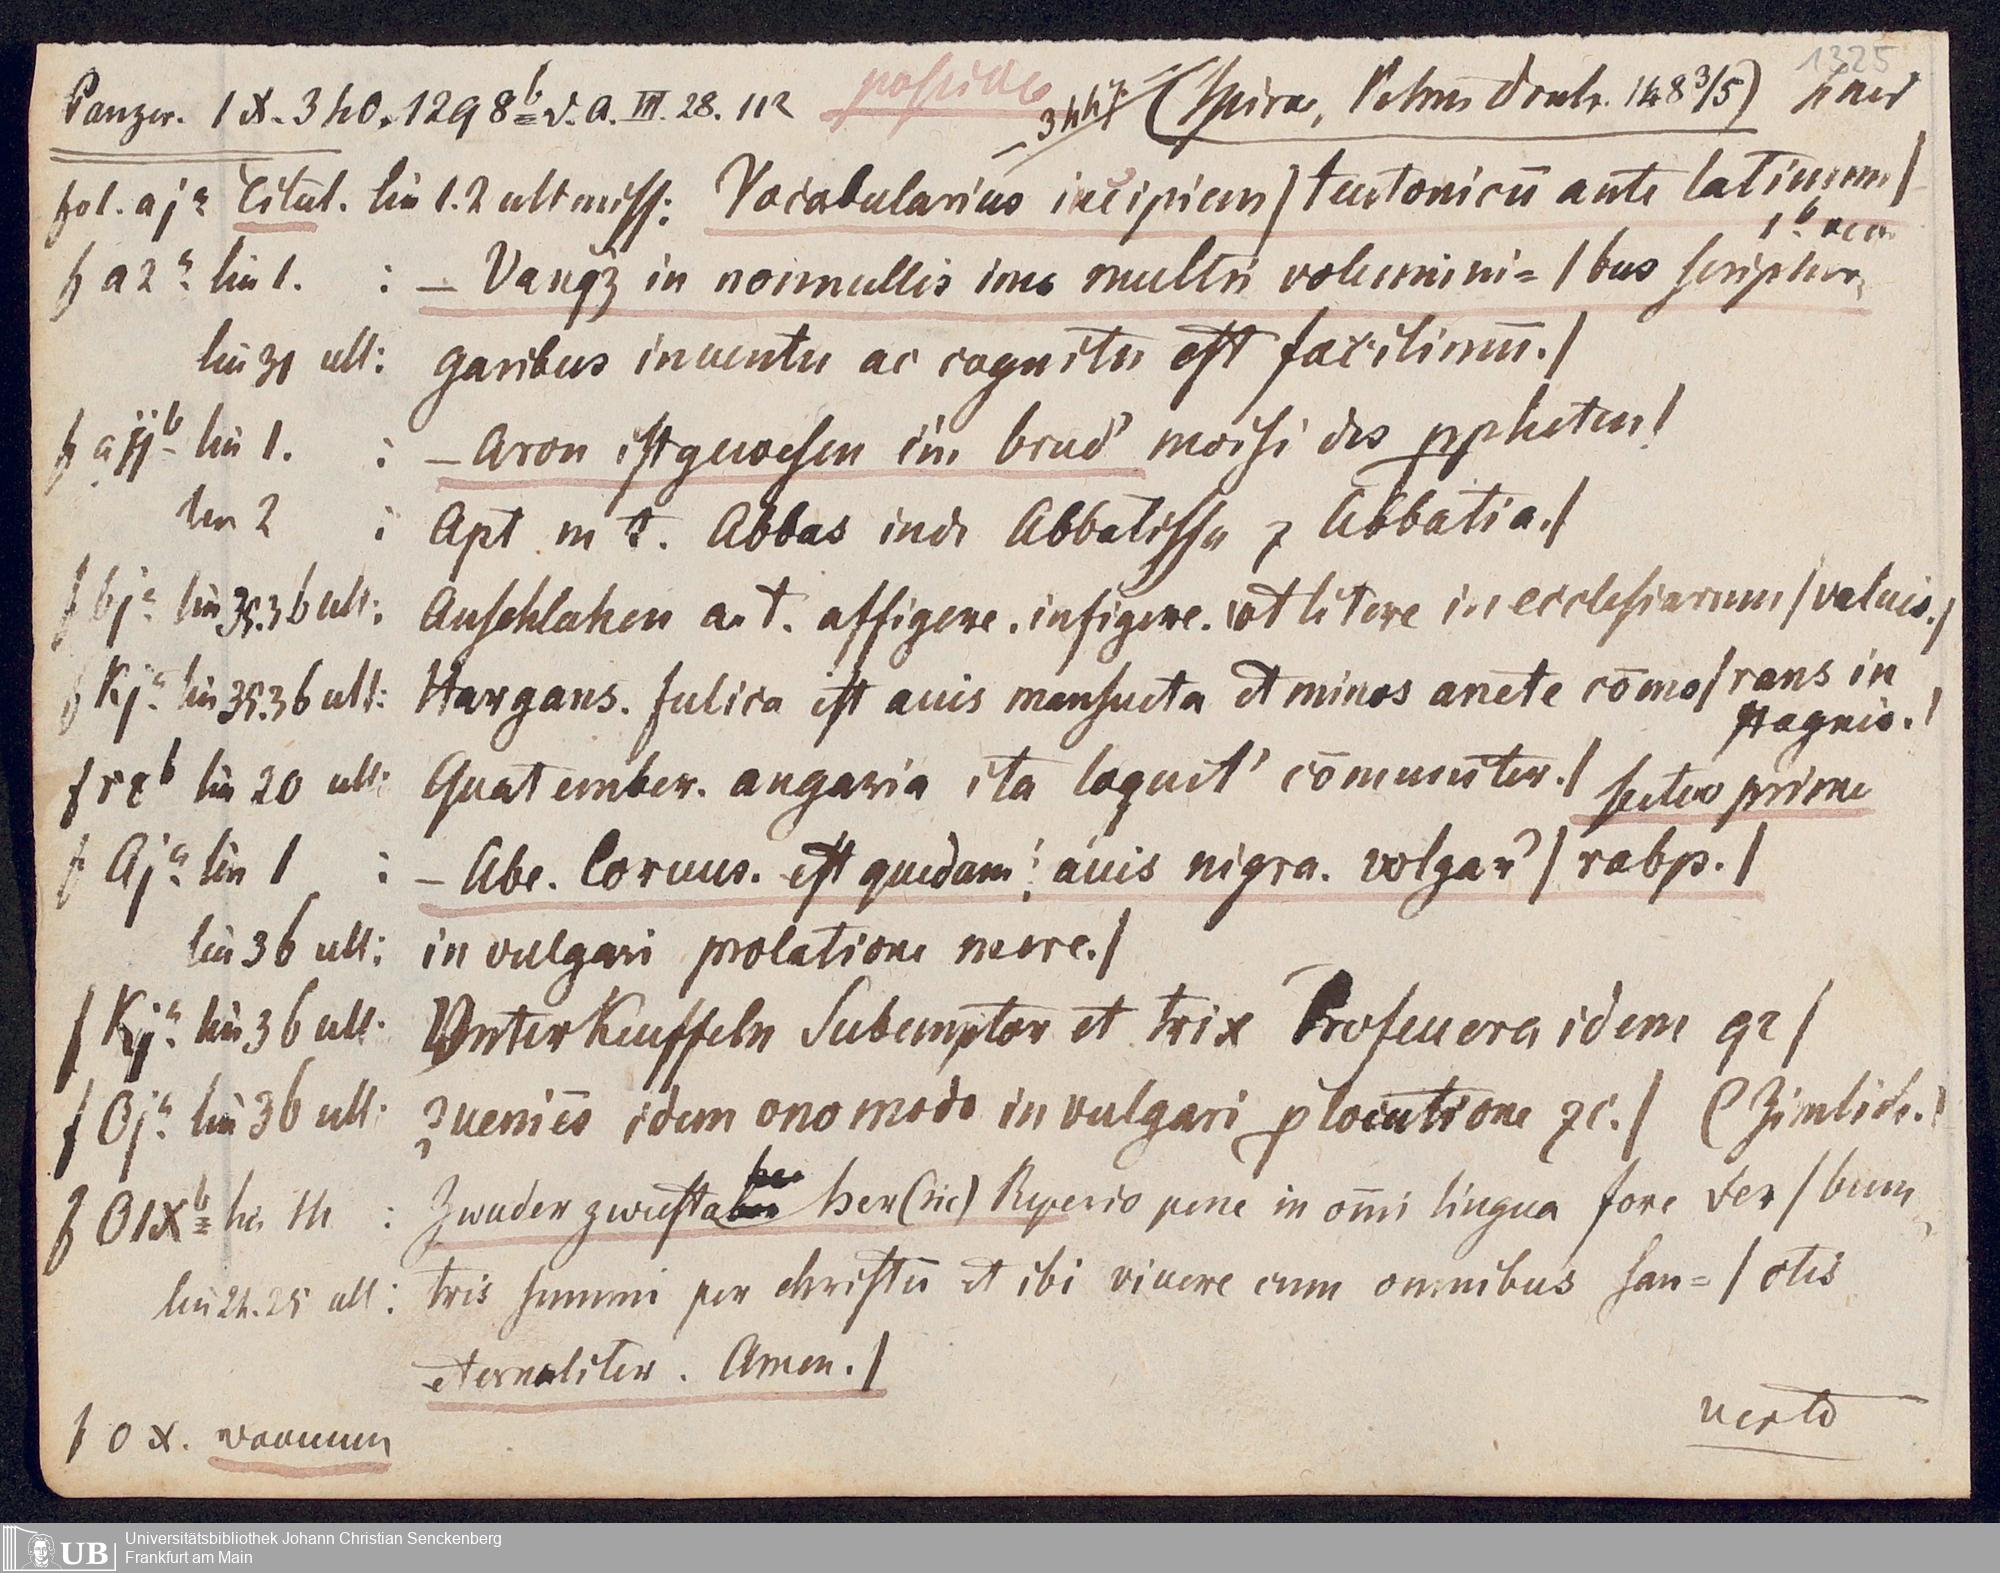 1325
Panzer. IX. 340. 1298b v. A. III. 28. 112 possideo (Spira, Petrus Drach. 148 3/5)
fol. aja Titul. lin 1.2 ult miss: Vocabularius incipiens / teutonicū ante latinum /
1b vacu
f a2a lin 1. : – Vanqz in nonnullis imo multis volumini= / bus
lin 31 ult: garibus inuentu ac cognitu est facilimū. /
f aijb lin 1. : – Aron ist gewesen ein brud' moisi des ppheten /
lin 2 : Apt m t. Abbas inde Abbatissa z Abbatia. /
f bja lin 35.36 ult: Anschlahen a. t. affigere. infigere. vt litere in ecclesiarum / valuis. /
f Kja lin 35.36 ult: Hargans. fulica est auis mansueta et minos anete cōmo / rans in
stagnis. /
f rzb lin 20 ult: Quatember. angaria ita loquit' cōmuniter. / prime
f Aja lin 1 : – Abe. Coruus. est quedam auis nigra. volgar' / rabp. /
lin 36 ult: in vulgari prolatione more. /
f Kja lin 36 ult: Vnterkeuffeln Subemptor et trix Proseucra idem qz /
f Oja lin 36 ult: zueniēs idem ono modo in vulgari plocutione zc. / (Zimlich. /
f OIXb lin 14 : Zwuder zwusta her (sic) Reperio pene in om̄i lingua fore ver / bum
lin 24.25 ult: tris summi per christū et ibi viuere cum omnibus san= / ctis
eternaliter. Amen. /
verte
f O X. vacuum
Universitätsbibliothek Johann Christian Senckenberg
UB Frankfurt am Main